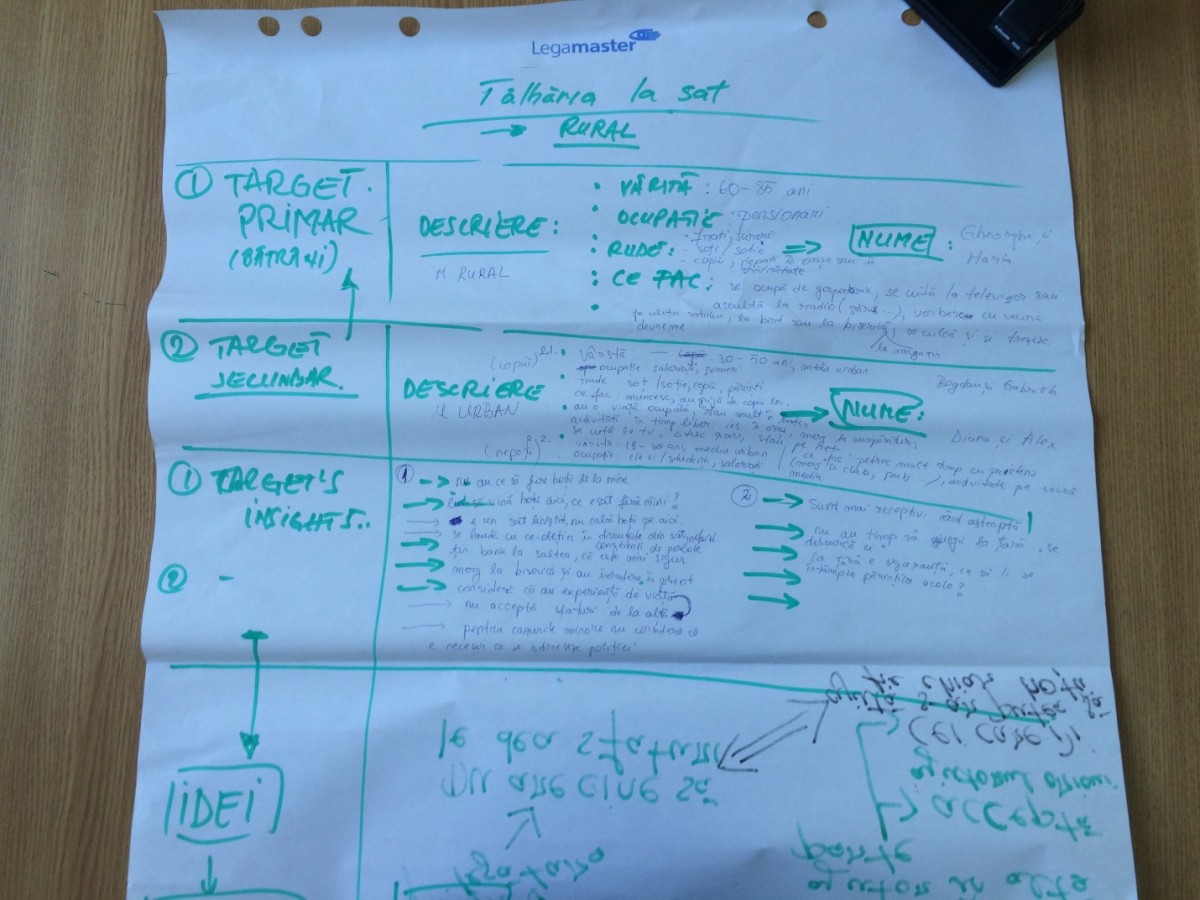 Legamaster
Tâlhăria la sat
→ RURAL
① TARGET
PRIMAR
(BĂTRÂNI)
DESCRIERE:
M RURAL
• VÂRSTĂ: 60-85 ani
• OCUPAȚIE: pensionari
• RUDE: - frați, surori
- soți/soție
- copii, nepoți în orașe sau în
străinătate
• CE FAC: se ocupă de gospodărie, se uită la televizor sau
ascultă la radio (știri...), vorbesc cu vecinii
pe ulița satului, la bord sau la biserică, se culcă și se trezesc
devreme
la magazin
⇒ NUME:
Gheorghe și
Maria
② TARGET
SECUNDAR
DESCRIERE
M URBAN
(copii) 2.1.
• vârstă 30-50 ani, mediu urban
ocupație salariați, șomeri
rude soț/soție, copii, părinți
ce fac: muncesc, au grijă de copii lor,
• au o viață ocupată, stau mult în trafic
activități în timp liber: ies în oraș, merg la cumpărături,
se uită la tv, citesc ziare, stau pe net
(nepoți) 2.2.
• vârsta: 18-30 ani, mediu urban
ocupație elevi/studenți, salariați
ce fac: petrec mult timp cu prietenii
(merg în club, pub), activitate pe social
media
→ NUME:
Bogdan și Gabriela
Diana și Alex
① TARGET'S
INSIGHTS..
② -
①
→ nu au ce să fure hoții de la mine
→ să vină hoții aici, ce e sat fără câini?
→ e un sat liniștit, nu calcă hoții pe aici
→ se laudă cu ce dețin în discuțiile din sat
→ țin banii la saltea, că este mai sigur
→ merg la biserică și au încredere în preot
→ consideră că au experiență de viață
→ nu acceptă sfaturi de la alții
→ pentru cazurile minore nu consideră că
e necesar să se adreseze poliției
②
→ Sunt mai receptivi când așteaptă
→ nu au timp să ajungă la țară, se
descurcă ei
→ la țară e siguranță, ce să li se
întâmple părinților acolo?
IDEI
nu are cine să
le dea sfaturi
acceptă
ajutorul
cei care îi
ajută
chiar
ajutor
alta
parte